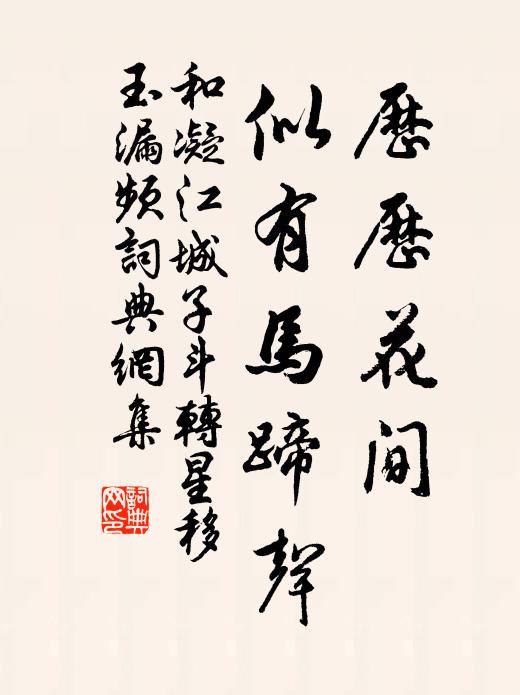 歷歷花間
似有馬蹄聲
和凝江城子斗轉星移
玉漏頻詞典網集
詞典網印